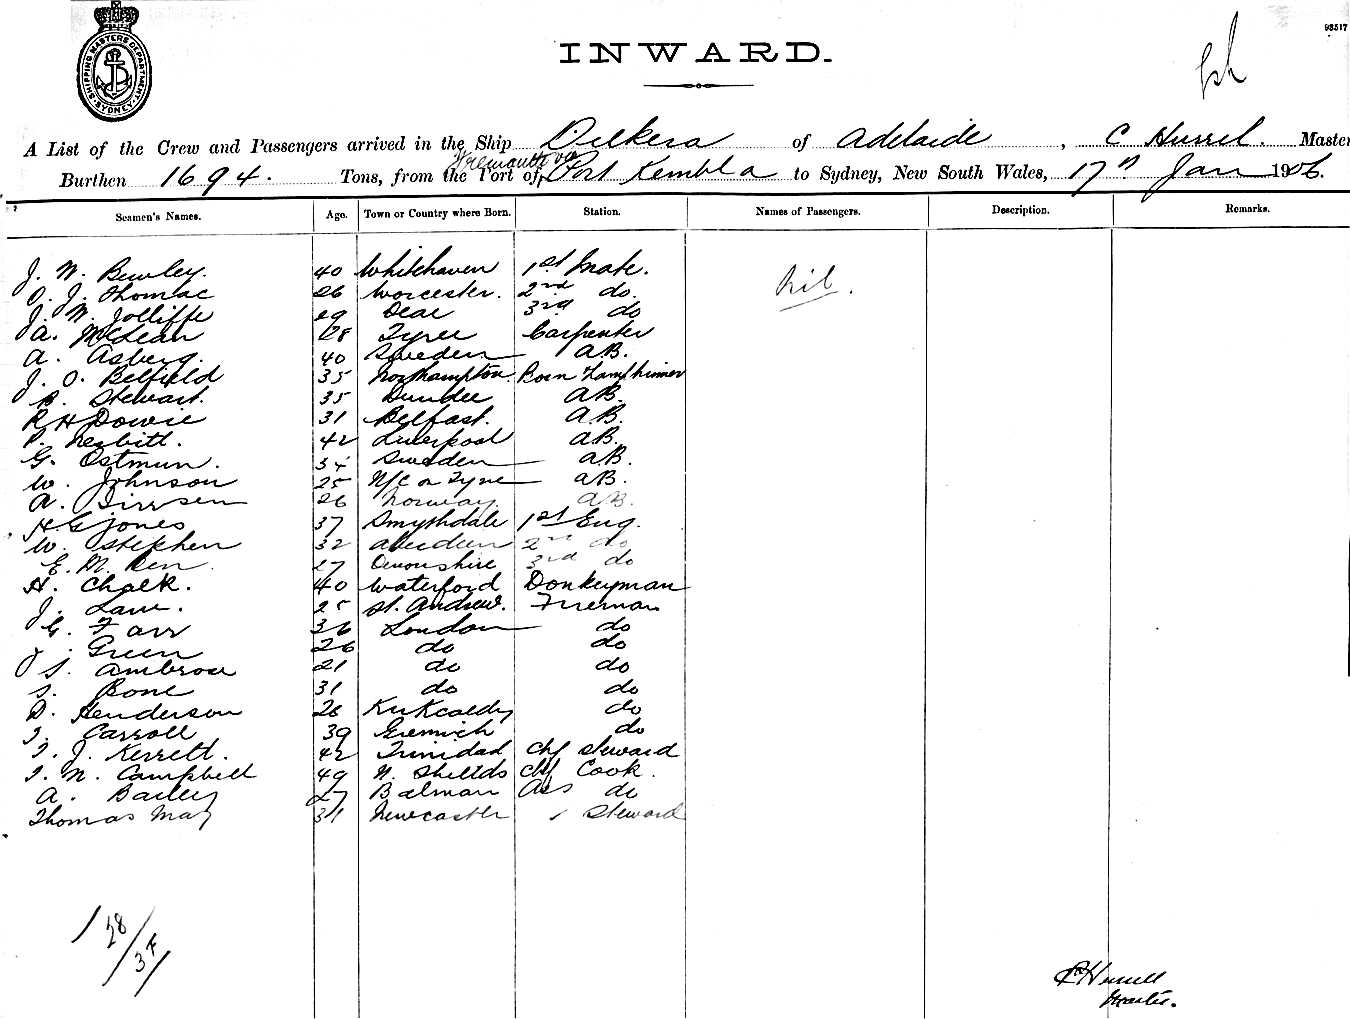 98517
SHIPPING MASTERS DEPARTMENT SYDNEY
INWARD.
A List of the Crew and Passengers arrived in the Ship Dilkera of Adelaide, C Hurrel. Master
Fremantle via
Burthen 1694. Tons, from the Port of Port Kembla to Sydney, New South Wales, 17th Jan 1906.
Seamen's Names. Age. Town or Country where Born. Station. Names of Passengers. Description. Remarks.
J. W. Bewley. 40 Whitehaven 1st Mate. Nil.
O. J. Thomac 26 Worcester. 2nd do.
J. W. Jolliffe 29 Deal 3rd do
A. McLean 28 Tyree Carpenter
A. Asberg. 40 Sweden AB.
J. O. Belfield 35 Northampton. Bosn Lamptrimmer
Stewart. 35 Dundee AB.
R H Dowie 31 Belfast. AB.
P. Nesbitt. 42 Liverpool AB.
G. Ostmun. 34 Sweden AB.
W. Johnson 25 N/C on Tyne AB.
A. 26 Norway. AB.
H. G Jones 37 Smythdale 1st Eng.
W. Stephen 32 Aberdeen 2nd do
E. M. Ken 27 Devonshire 3rd do
H. Chalk. 40 Waterford Donkeyman
J. Law. 25 St. Andrew. Fireman
G. Farr 36 London do
J. Green 26 do do
S. Ambrose 21 do do
S. Bone 31 do do
D. Henderson 28 Kirkcaldy do
J. Carroll 39 Grenwich do
J. J. Kerrett. 42 Trinidad chf Steward
J. N. Campbell 49 N. Shields chf Cook.
A. Bailey 27 Balman Ass do
Thomas May 31 Newcastle Steward
1 28/3F
Hurrell
Master.